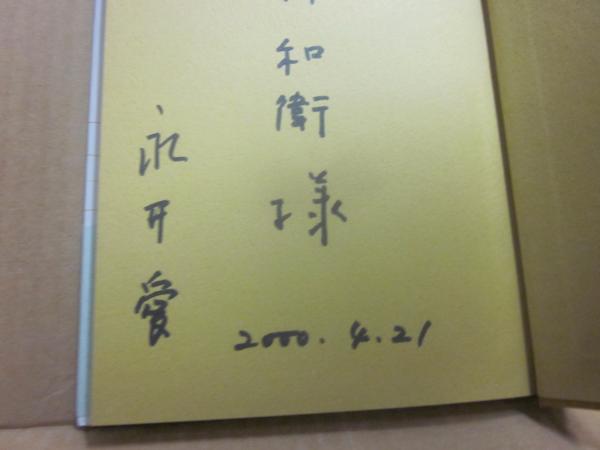 和衛様
永井愛
2000.4.21